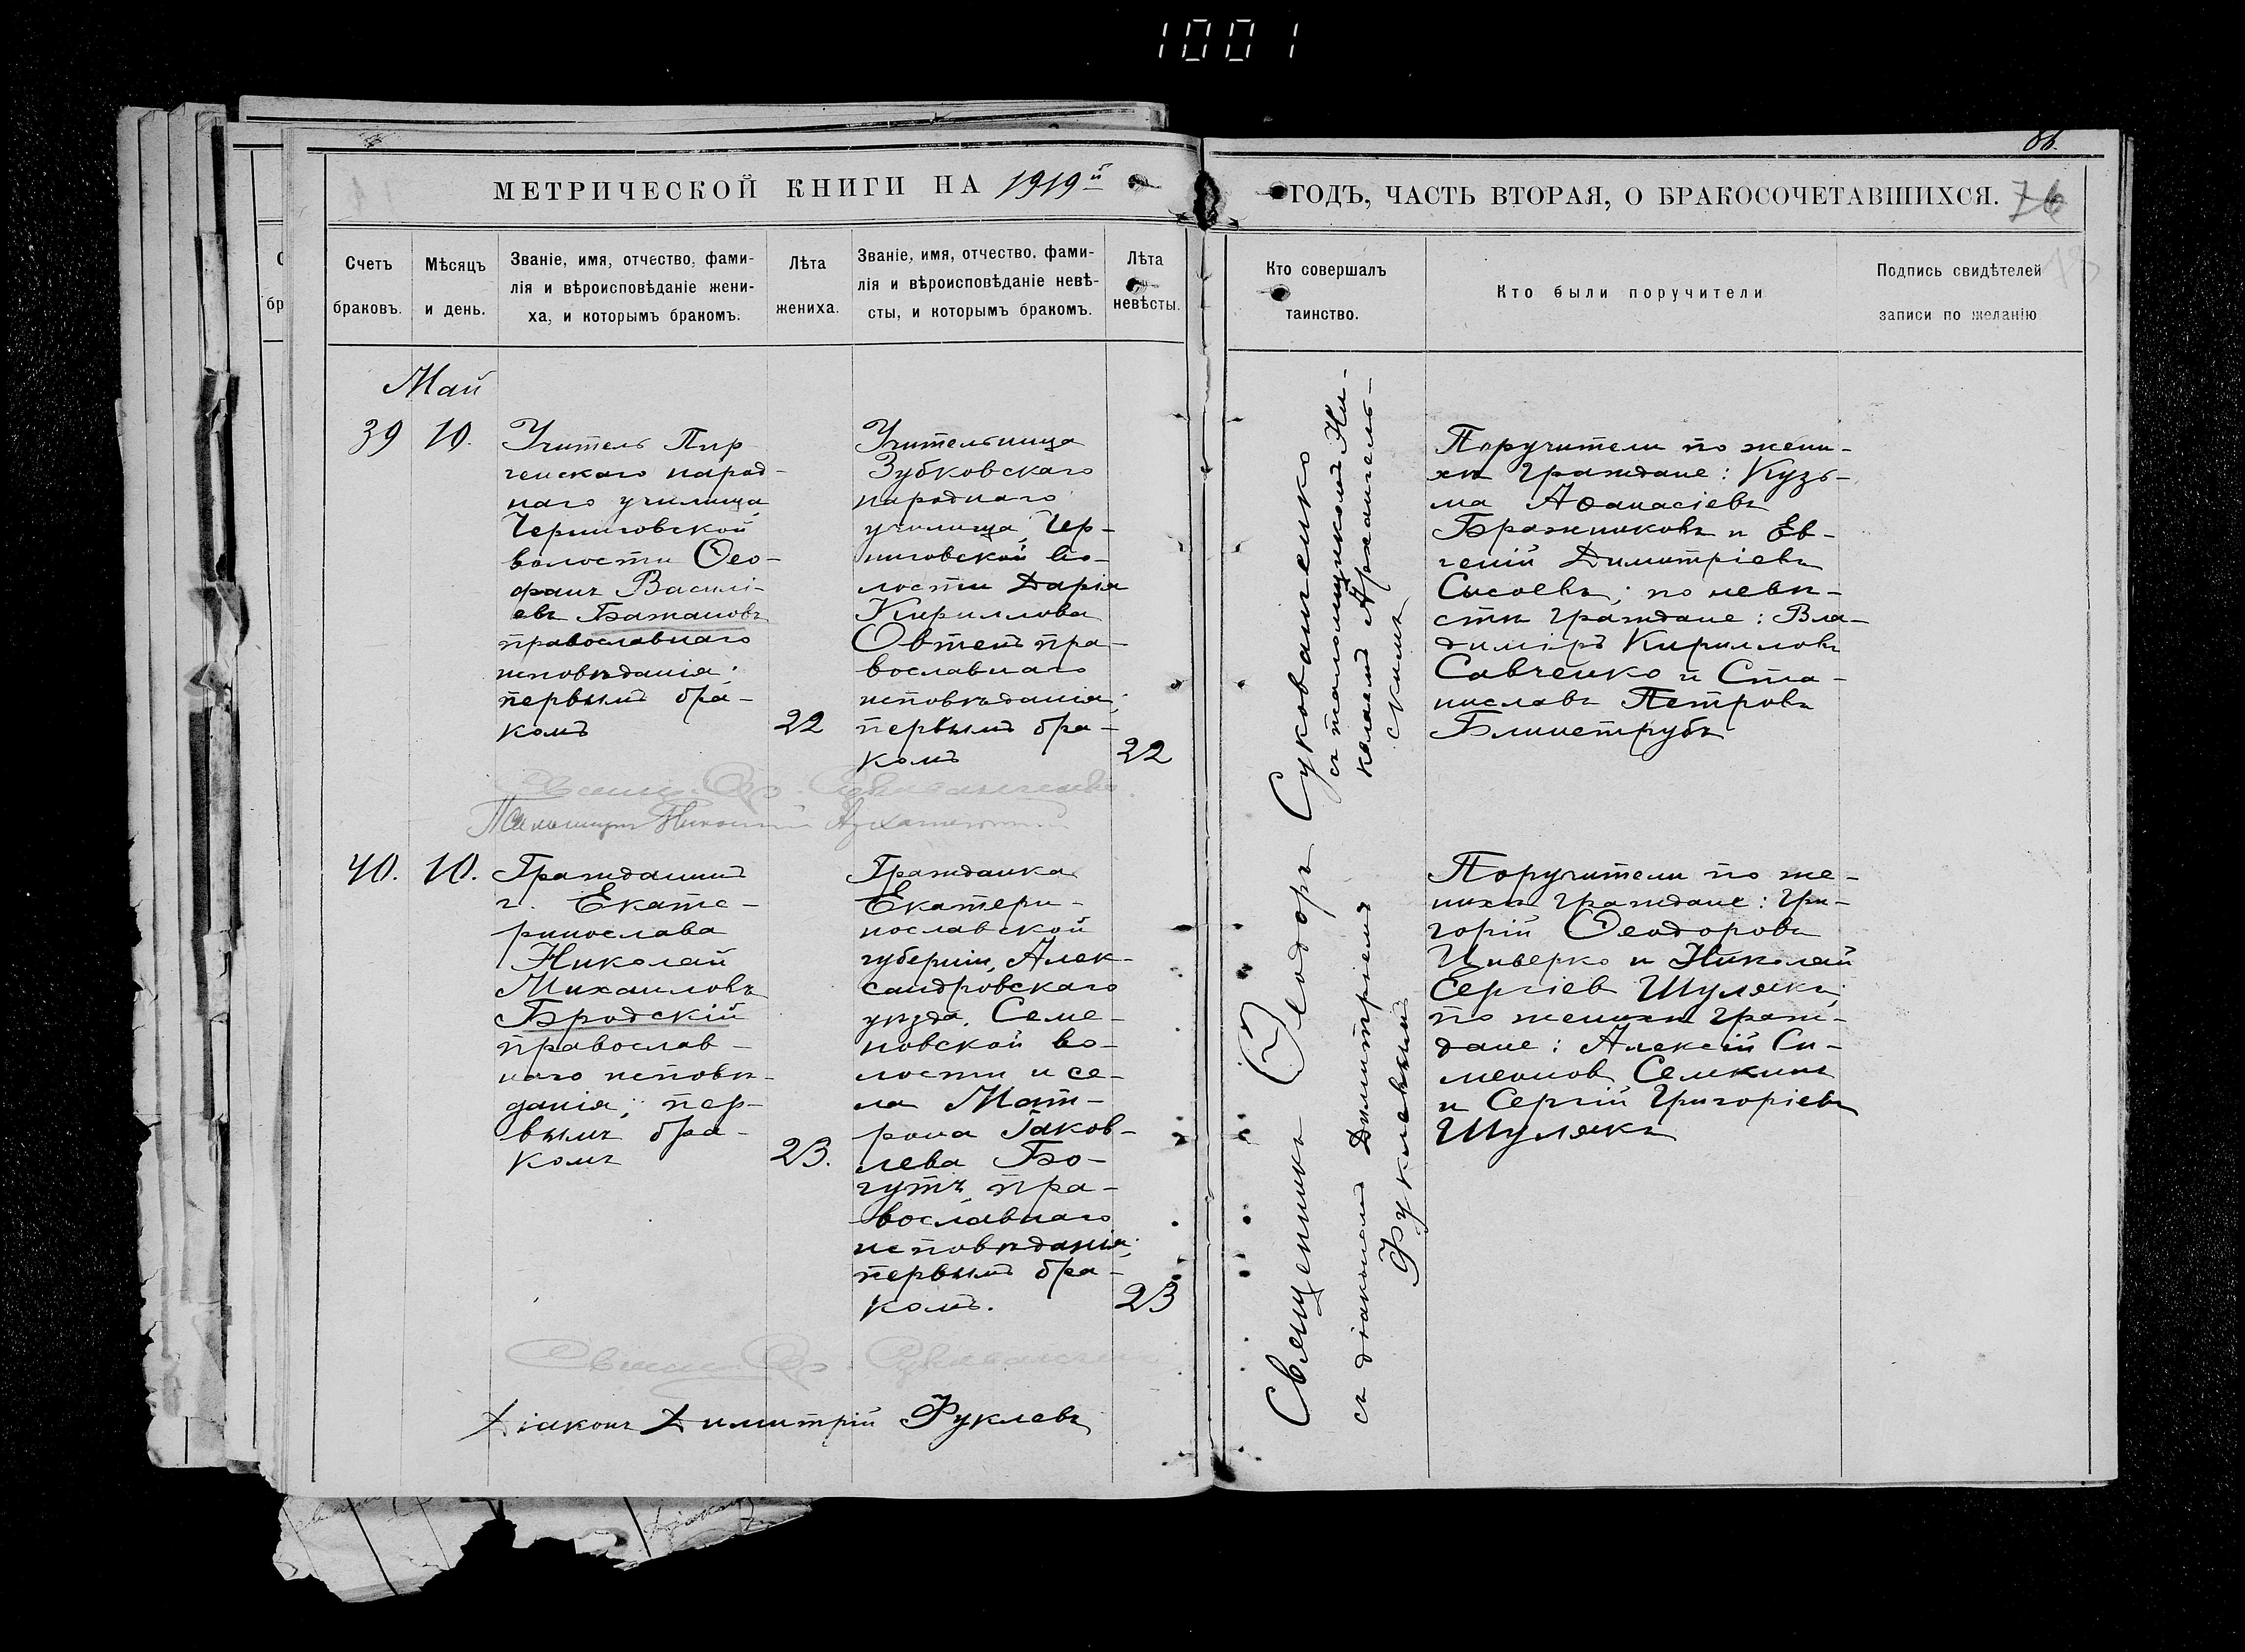 1001
86.
МЕТРИЧЕСКОЙ КНИГИ НА 1919й
ГОДЪ, ЧАСТЬ ВТОРАЯ, О БРАКОСОЧЕТАВШИХСЯ. 76
Счетъ
браковъ.
Мѣсяцъ
и день.
Званіе, имя, отчество, фами-
лія и вѣроисповѣданіе жени-
ха, и которымъ бракомъ.
Лѣта
жениха.
Званіе, имя, отчество, фами-
лія и вѣроисповѣданіе невѣ-
сты, и которымъ бракомъ.
Лѣта
невѣсты.
Кто совершалъ
таинство.
Кто были поручители
Подпись свидѣтелей
записи по желанію
Май
39
10.
Учитель
ченскаго народ-
наго училища,
Черниговской
волости Ѳео-
фанъ Василі-
евъ Бажановъ
православнаго
исповѣданія;
первымъ бра-
комъ
22
Учительница
Зубковскаго
народнаго
училища, Чер-
ниговской во-
лости Дарія
Кириллова
Овтенъ пра-
вославнаго
исповѣданія;
первымъ бра-
комъ
22
Священникъ Ѳеодоръ Сукованченко
съ псаломщикомъ Ни-
колаемъ Архангель-
скимъ
Поручители по жени-
хѣ граждане: Кузь-
ма Аѳанасіевъ
Бражниковъ и Ев-
геній Димитріевъ
Сысоевъ; по невѣ-
стѣ граждане: Вла-
диміръ Кирилловъ
Савченко и Ста-
ниславъ Петровъ
Блинетрубъ
Свящ. Ѳ. Сукованченко.
Псаломщикъ Николай Архангельскій
40.
10.
Гражданинъ
г. Екате-
ринослава
Николай
Михаиловъ
Бродскій
православ-
наго исповѣ-
данія; пер-
вымъ бра-
комъ
23.
Гражданка
Екатери-
нославской
губерніи, Алек-
сандровскаго
уѣзда, Семе-
новской во-
лости и се-
ла Мат-
рона Іаков-
лева Бо-
гутъ, пра-
вославнаго
исповѣданія;
первымъ бра-
комъ.
23
съ діакономъ Димитріемъ
Фуклевымъ
Поручители по же-
нихѣ граждане: Гри-
горій Ѳеодоровъ
Циверко и Николай
Сергіев Шулякъ;
по женихѣ граж-
дане: Алексій Си-
меонов Семкинъ
и Сергій Григоріевъ
Шулякъ
Свящ. Ѳ. Сукованченко
Діаконъ Димитрій Фуклевъ